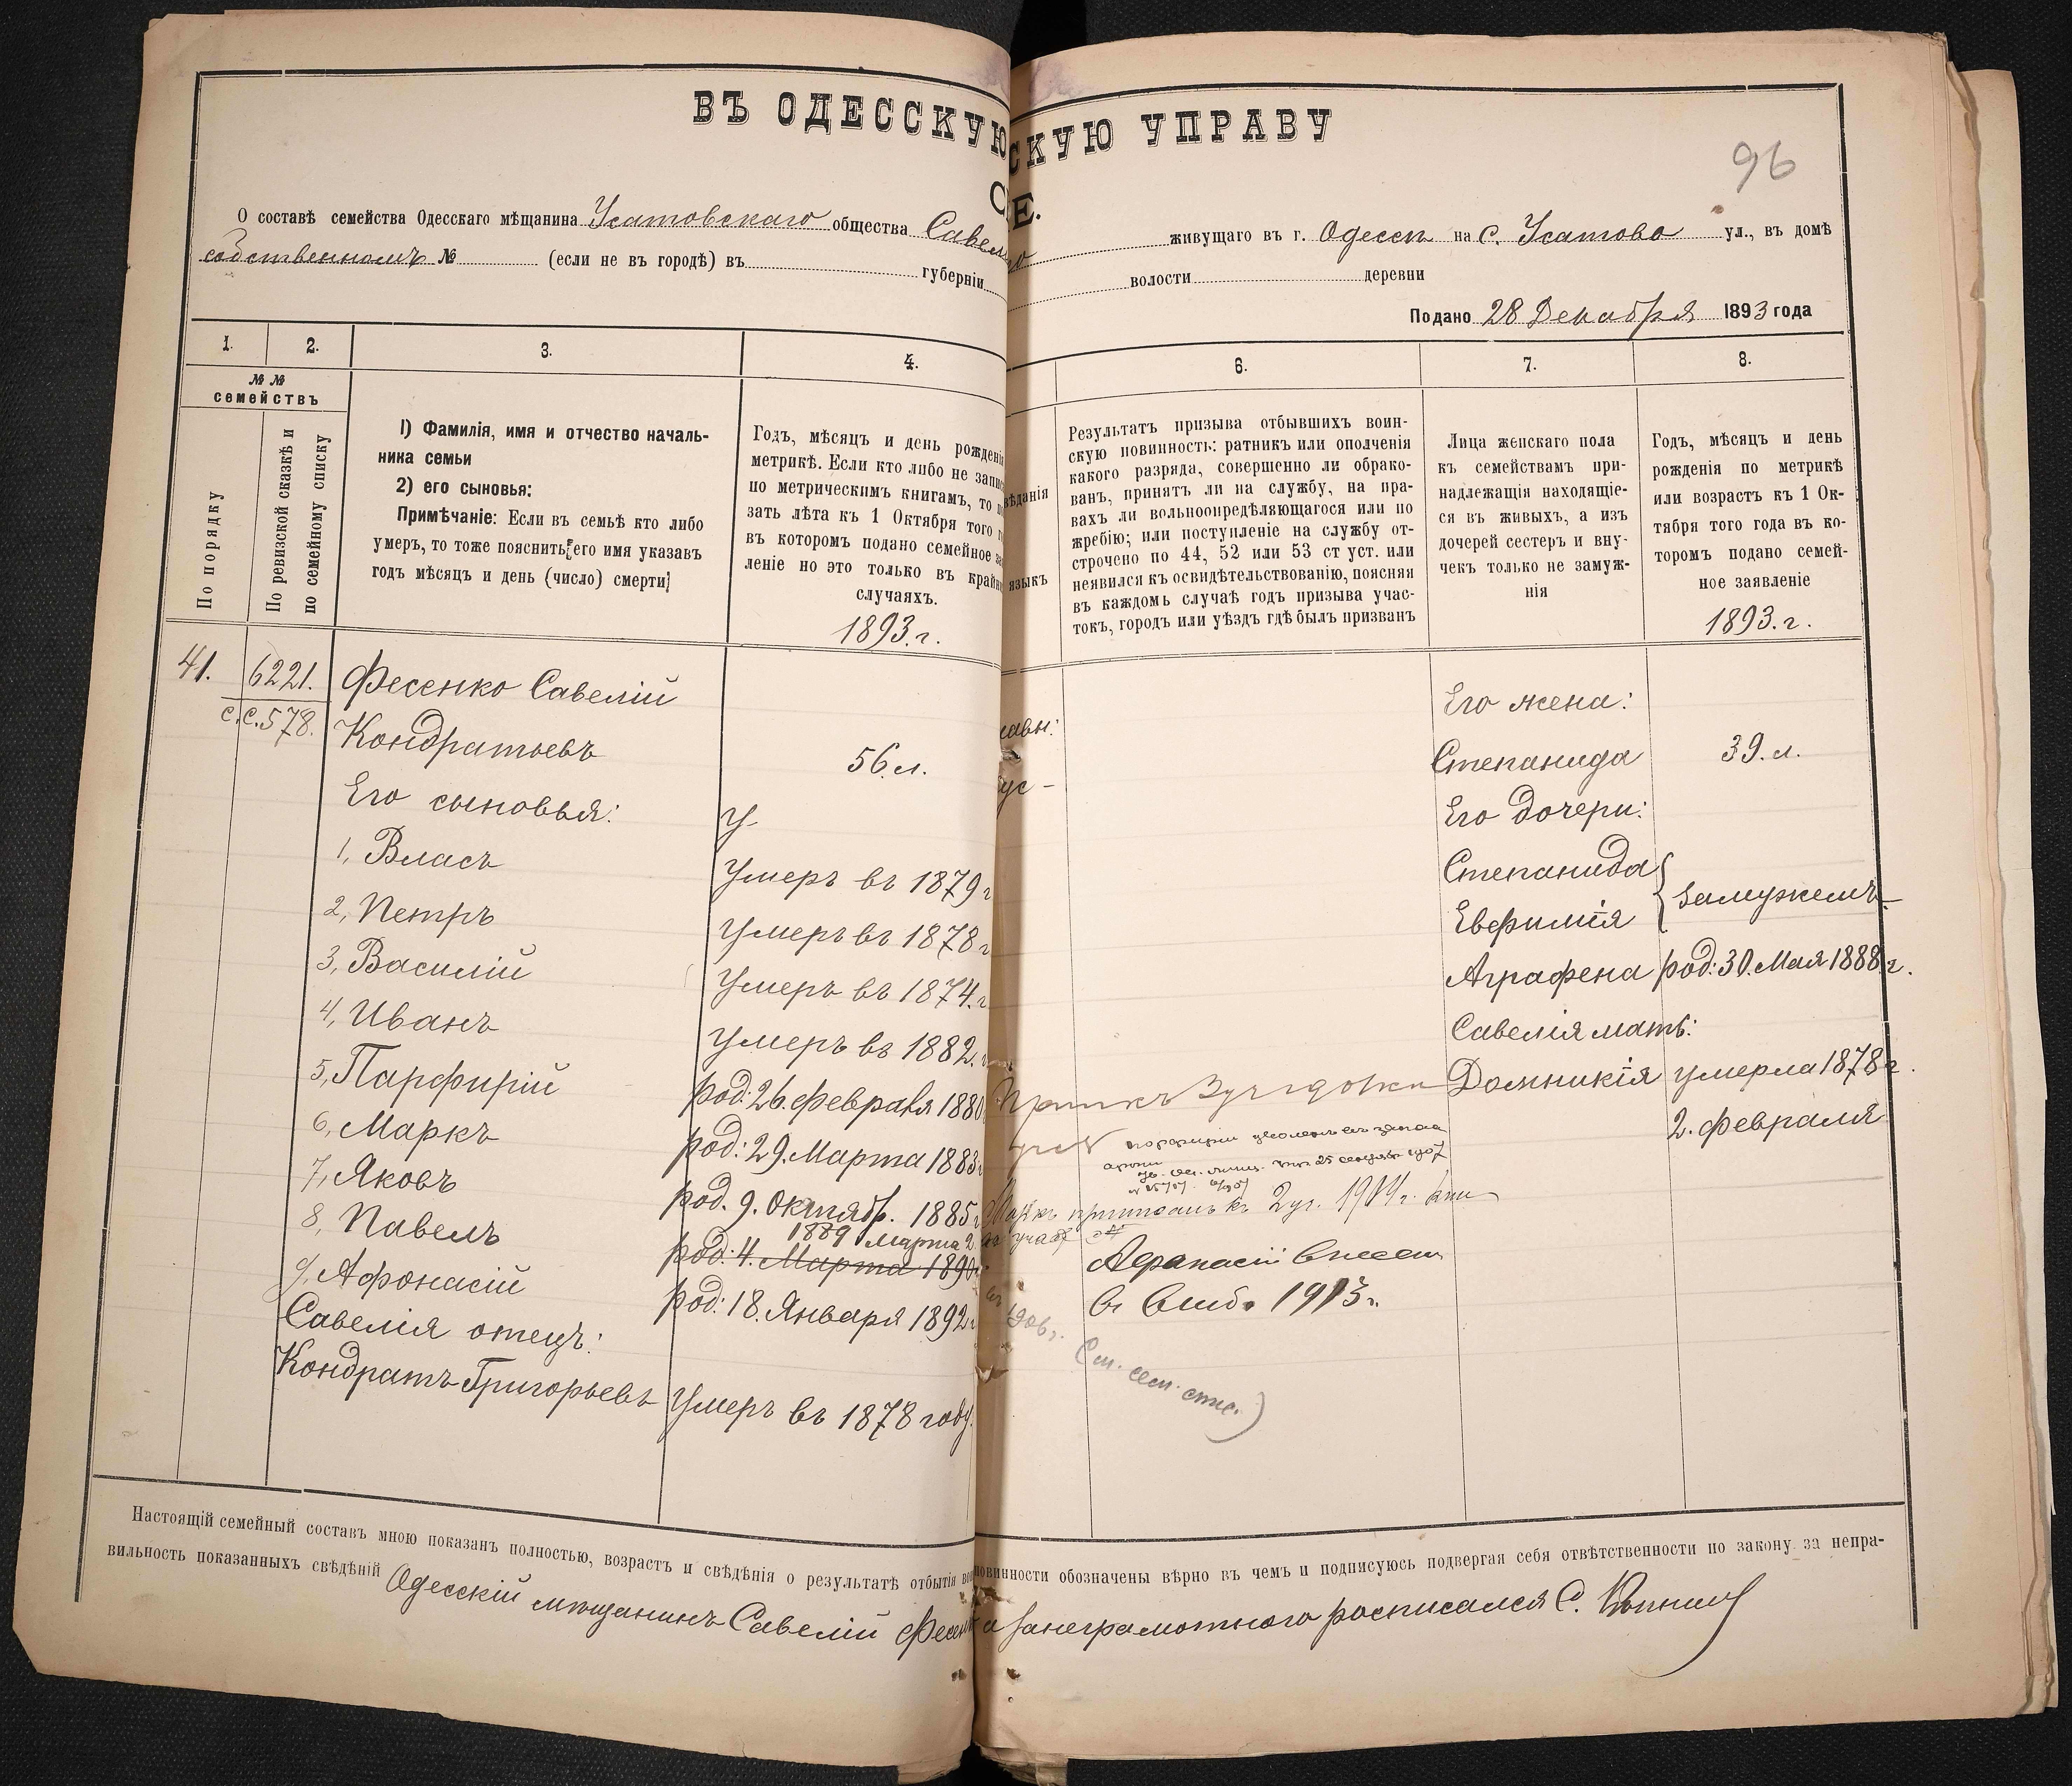 ВЪ ОДЕССКУЮ
СКУЮ УПРАВУ
96
Е.
О составѣ семейства Одесскаго мѣщанина Усатовскаго общества Савел
живущаго въ г. Одессѣ на с. Усатово ул., въ домѣ
собственномъ № (если не въ городѣ) въ губерніи
волости деревни
Подано 28 Декабря 1893 года
1. 2. 3. 4.
6. 7. 8.
№ №
семействъ
По порядку
По ревизской сказкѣ и
по семейному списку
1) Фамилія, имя и отчество началь-
ника семьи
2) его сыновья:
Примѣчаніе: Если въ семьѣ кто либо
умеръ, то тоже пояснить его имя указавъ
годъ мѣсяцъ и день (число) смерти
Годъ, мѣсяцъ и день рожденія
метрикѣ. Если кто либо не запис
по метрическимъ книгамъ, то п
зать лѣта къ 1 Октября того г
въ которомъ подано семейное за
леніе но это только въ крайн
случаяхъ.
1893. г.
вѣданія
языкъ
Результатъ призыва отбывшихъ воин-
скую повинность: ратникъ или ополченія
какого разряда, совершенно ли обрако-
ванъ, принятъ ли на службу, на пра-
вахъ ли вольноопредѣляющагося или по
жребію; или поступленіе на службу от-
строчено по 44, 52 или 53 ст уст. или
неявился къ освидѣтельствованію, поясняя
въ каждомъ случаѣ годъ призыва учас-
токъ, городъ или уѣздъ гдѣ былъ призванъ
Лица женскаго пола
къ семействамъ при-
надлежащія находящіе-
ся въ живыхъ, а изъ
дочерей сестеръ и вну-
чекъ только не замуж-
нія
Годъ, мѣсяцъ и день
рожденія по метрикѣ
или возрастъ къ 1 Ок-
тября того года въ ко-
торомъ подано семей-
ное заявленіе
1893. г.
41. 6221. Фесенко Савелій
с.с. 578. Кондратьевъ 56. л.
Его сыновья: У
1, Власъ Умеръ въ 1879 г
2, Петръ Умеръ въ 1878 г
3, Василій Умеръ въ 1874. г
4, Иванъ Умеръ въ 1882. г
5, Парфирій род: 26. Февраля 1880
6, Маркъ род: 29. Марта 1883 г
7, Яковъ род. 9. Октябр. 1885 г
1889 Марта 2
8, Павелъ род: 4. Марта 1890
9, Афонасій род: 18. Января 1892 г
Савелія отецъ:
Кондратъ Григорьевъ Умеръ въ 1878 году.
Его жена:
Степанида 39. л.
Его дочери:
Степанида
Евфимія замужемъ
Аграфена род: 30. Мая 1888 г.
Савелія мать:
Домникія умерла 1878 г.
2. Февраля
Маркъ приписанъ къ 2 уч. 1904 г.
Афанасій внесен
в 1913 г.
1906 г.
(См. сем. спис.)
Настоящій семейный составъ мною показанъ полностью, возрастъ и свѣдѣнія о результатѣ отбытія во
повинности обозначены вѣрно въ чемъ и подписуюсь подвергая себя отвѣтственности по закону за непра-
вильность показанныхъ свѣдѣній Одесскій мѣщанинъ Савелій Фесен
а за неграмотного росписался С.